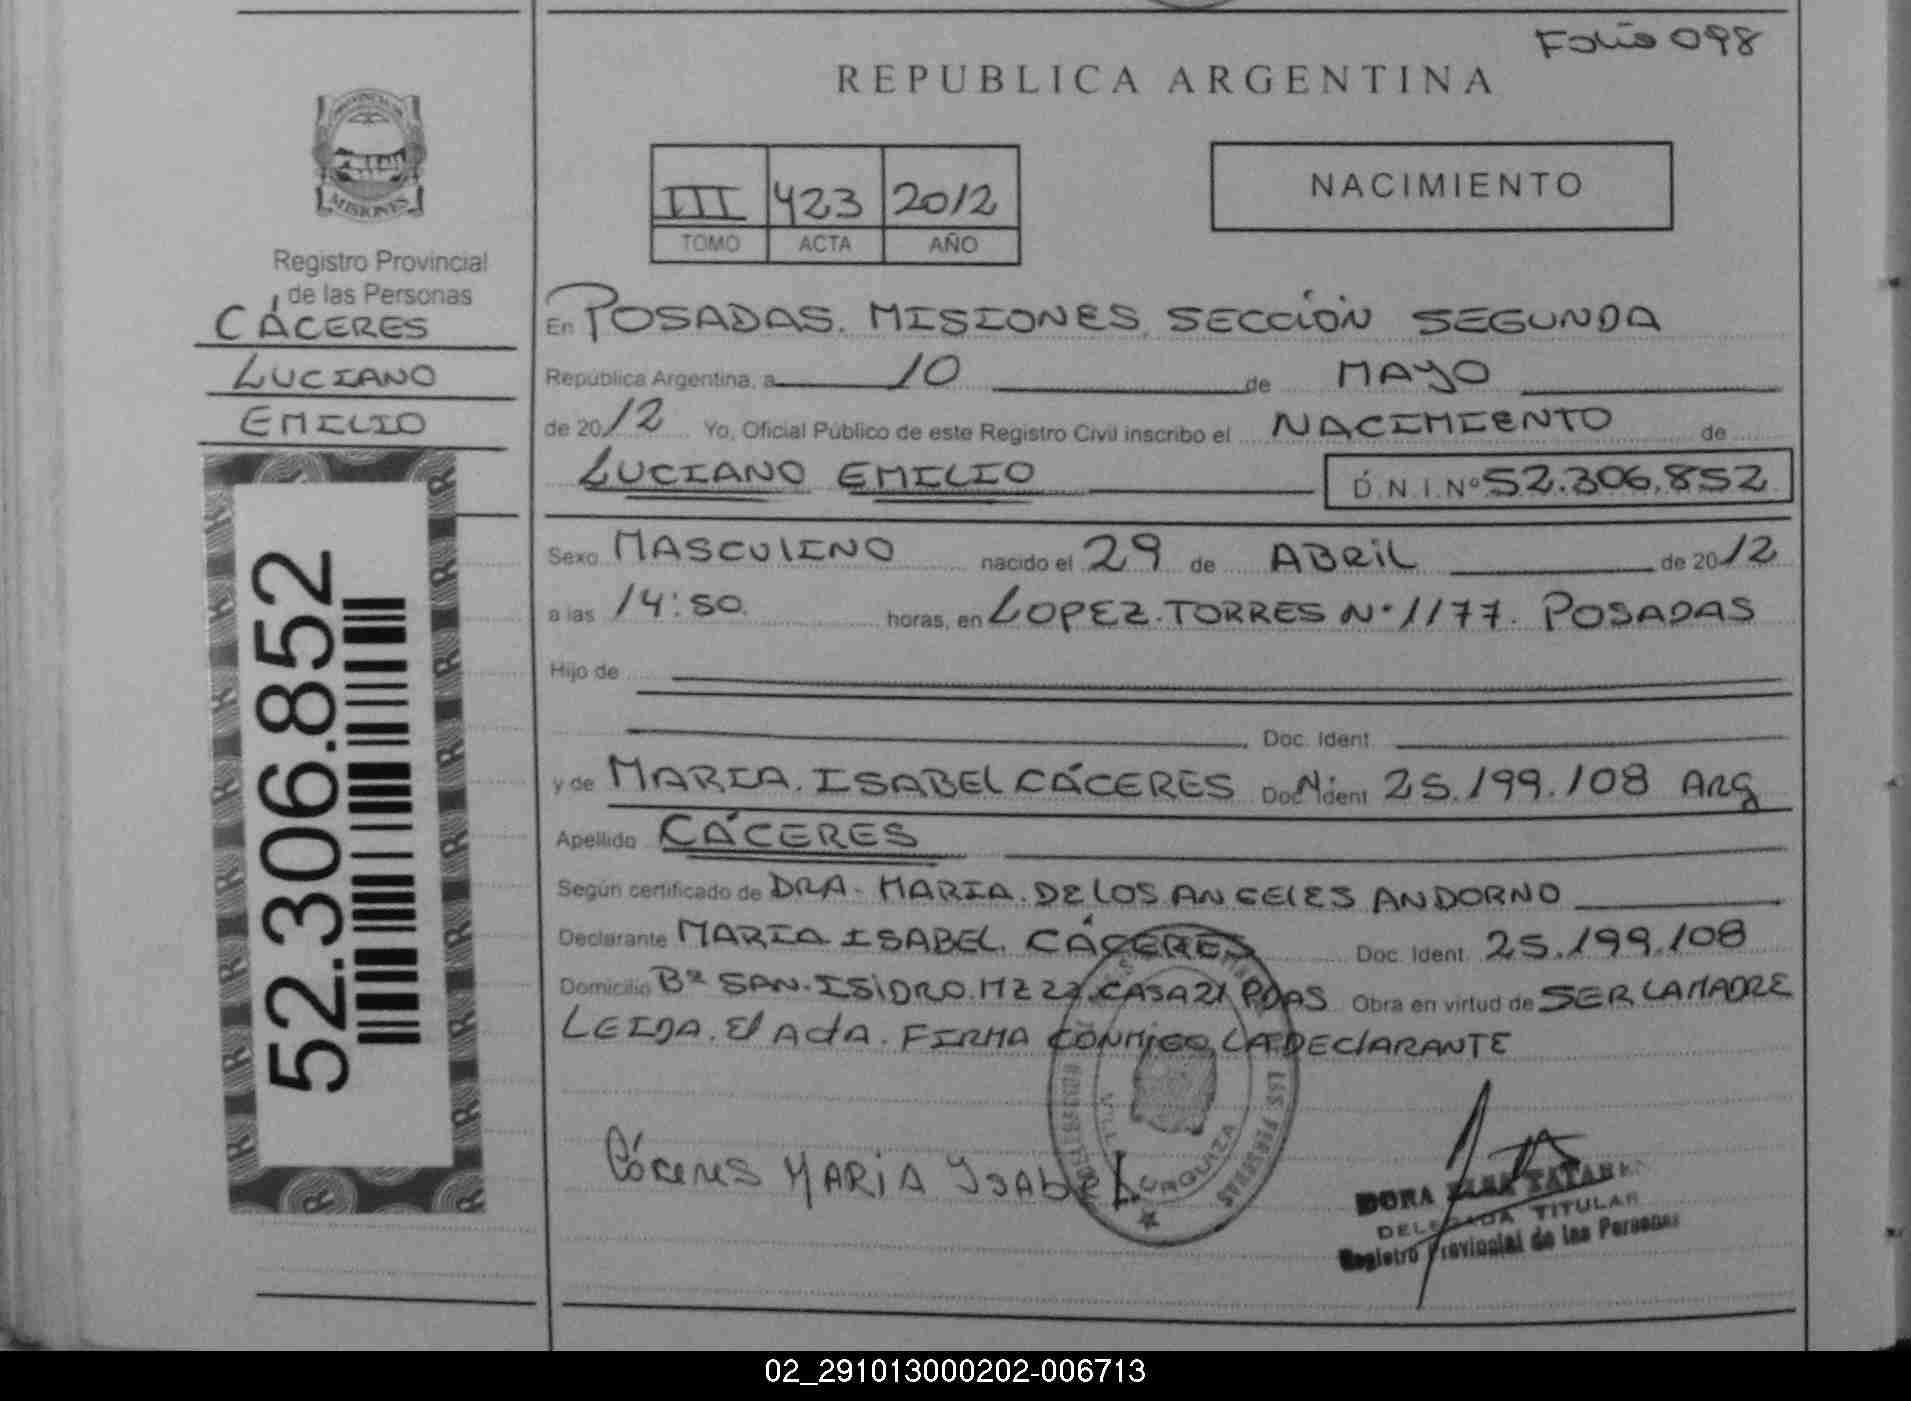 Folio 098
REPUBLICA ARGENTINA
PROVINCIA DE
MISIONES
Registro Provincial
de las Personas
CÁCERES
LUCIANO
EMILIO
52.306.852
III 423 2012
TOMO ACTA AÑO
NACIMIENTO
En POSADAS. MISIONES, SECCIÓN SEGUNDA
República Argentina, a 10 de MAYO
de 2012 Yo, Oficial Público de este Registro Civil inscribo el NACIMIENTO de
LUCIANO EMILIO D.N.I.Nº 52.306.852
Sexo MASCULINO nacido el 29 de ABRIL de 2012
a las 14:50. horas, en LOPEZ. TORRES Nº 1177. POSADAS
Hijo de
Doc. Ident.
y de MARIA. ISABEL CÁCERES Doc. Ident. Nº 25.199.108 ARG
Apellido CÁCERES
Según certificado de DRA. MARIA. DE LOS ANGELES ANDORNO
Declarante MARIA ISABEL. CÁCERES Doc. Ident. 25.199.108
Domicilio Bº SAN. ISIDRO. MZ 27. CASA 21 PDAS Obra en virtud de SER LA MADRE
LEIDA. El ActA. FIRMA CONMIGO, LA DEClARANTE
Cáceres MARIA YSABEL
VILLA URQUIZA
LAS PERSONAS
DORA
DELEGADA TITULAR
Registro Provincial de las Personas
02_291013000202-006713